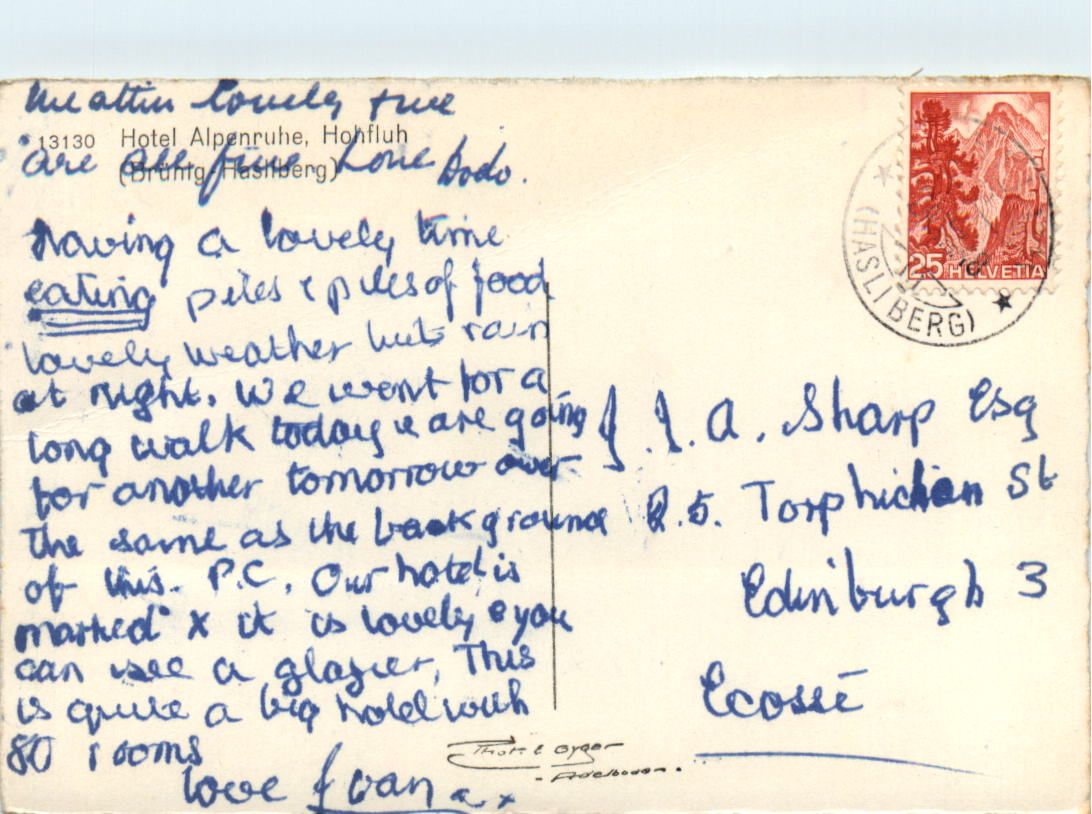 Weather lovely & we
13130 Hotel Alpenruhe, Hohfluh
are all fine Love Dodo.
(Brünig-Hasliberg)
Having a lovely time
eating piles & piles of food
lovely weather but rain
at night. We went for a
long walk today & are going
for another tomorrow over
the same as the background
of this. P.C. Our hotel is
marked x it is lovely & you
can see a glazier, This
is quite a big hotel with
80 rooms
love
25 HELVETIA
(HASLIBERG)
J. A. Sharp Esq
25. Torphichen St
Edinburgh 3
Ecosse
Adelboden.